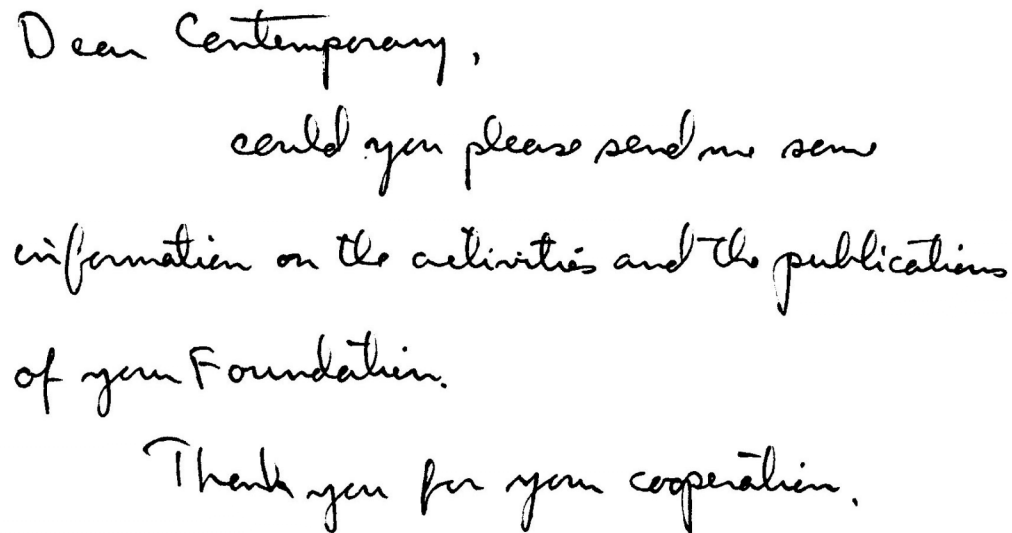 Dear Contemporary,
could you please send me some
information on the activities and the publications
of your Foundation.
Thank you for your cooperation.